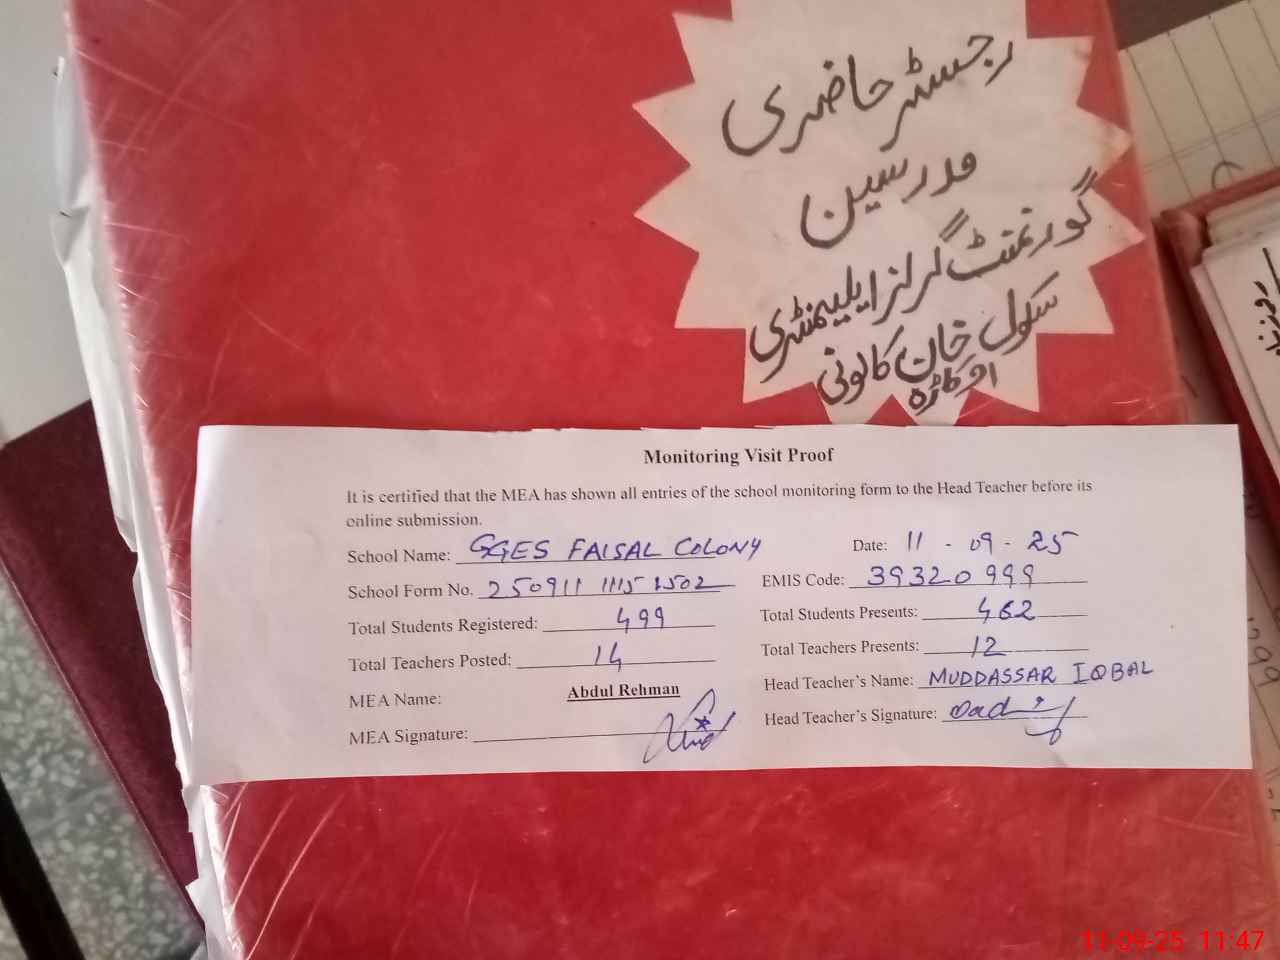 رجسٹر حاضری
مدرسین
گورنمنٹ گرلز ایلیمنٹری
سکول خان کالونی
اوکاڑہ
Monitoring Visit Proof
It is certified that the MEA has shown all entries of the school monitoring form to the Head Teacher before its
online submission.
School Name: GGES FAISAL COLONY Date: 11 - 09 - 25
School Form No. 250911 1115 1502 EMIS Code: 39320999
Total Students Registered: 499 Total Students Presents: 462
Total Teachers Posted: 14 Total Teachers Presents: 12
MEA Name: Abdul Rehman Head Teacher's Name: MUDDASSAR IQBAL
MEA Signature: Head Teacher's Signature:
11-09-25 11:47